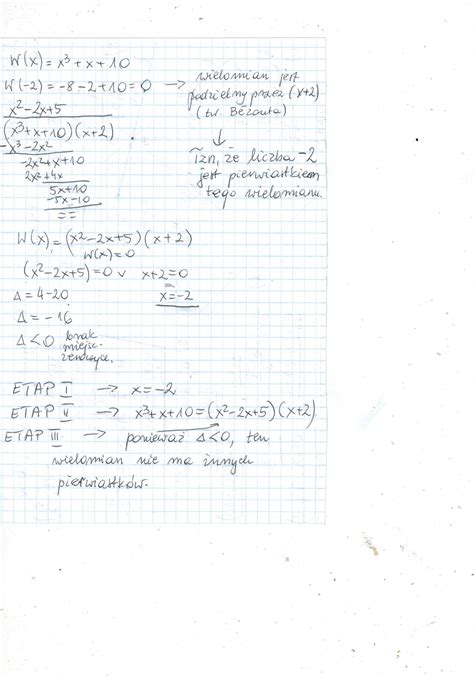 W(x) = x³ + x + 10
W(-2) = -8 - 2 + 10 = 0 → wielomian jest
podzielny przez (x+2)
(tw. Bézouta)
↓
Tzn, że liczba -2
jest pierwiastkiem
tego wielomianu.
x² - 2x + 5
(x³ + x + 10) (x + 2)
-x³ - 2x²
-2x² + x + 10
2x² + 4x
5x + 10
-5x - 10
= =
W(x) = (x² - 2x + 5) (x + 2)
W(x) = 0
(x² - 2x + 5) = 0 ∨ x + 2 = 0
Δ = 4 - 20 x = -2
Δ = -16
Δ < 0 brak
miejsc
zerowych.
ETAP I → x = -2
ETAP II → x³ + x + 10 = (x² - 2x + 5) (x + 2)
ETAP III → ponieważ Δ < 0, ten
wielomian nie ma innych
pierwiastków.